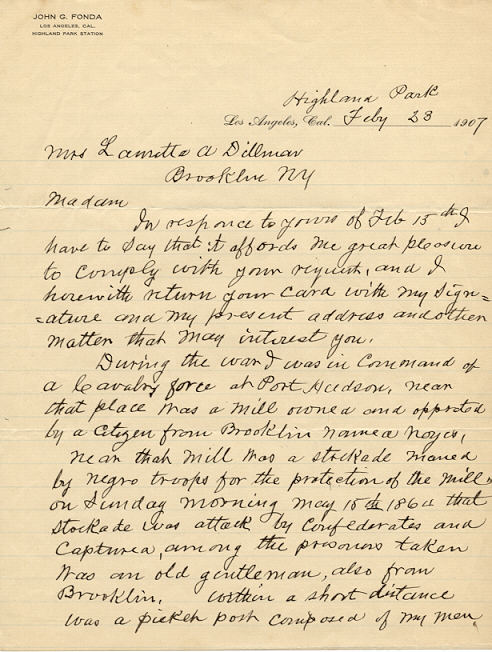 JOHN G. FONDA
LOS ANGELES, CAL.
HIGHLAND PARK STATION
Highland Park
Los Angeles, Cal. Feby 23 1907
Mrs Lauretta A Dillman
Brooklin NY
Madam
In responce to yours of Feb 15th I
have to Say that it affords me great pleasure
to comply with your request, and I
herewith return your Card with my Sign=
=ature and my present address and other
matter that may interest you.
During the war I was in Command of
a Cavalry force at Port Hudson, near
that place was a Mill owned and opperated
by a Citizen from Brooklin named Noyes,
near that Mill was a stockade maned
by negro troops for the protection of the Mill.
on Sunday morning May 15th 1864 that
stockade was attack by Confederates and
Captured, among the prisoners taken
was an old gentleman, also from
Brooklin. within a short distance
was a picket post composed of my men,